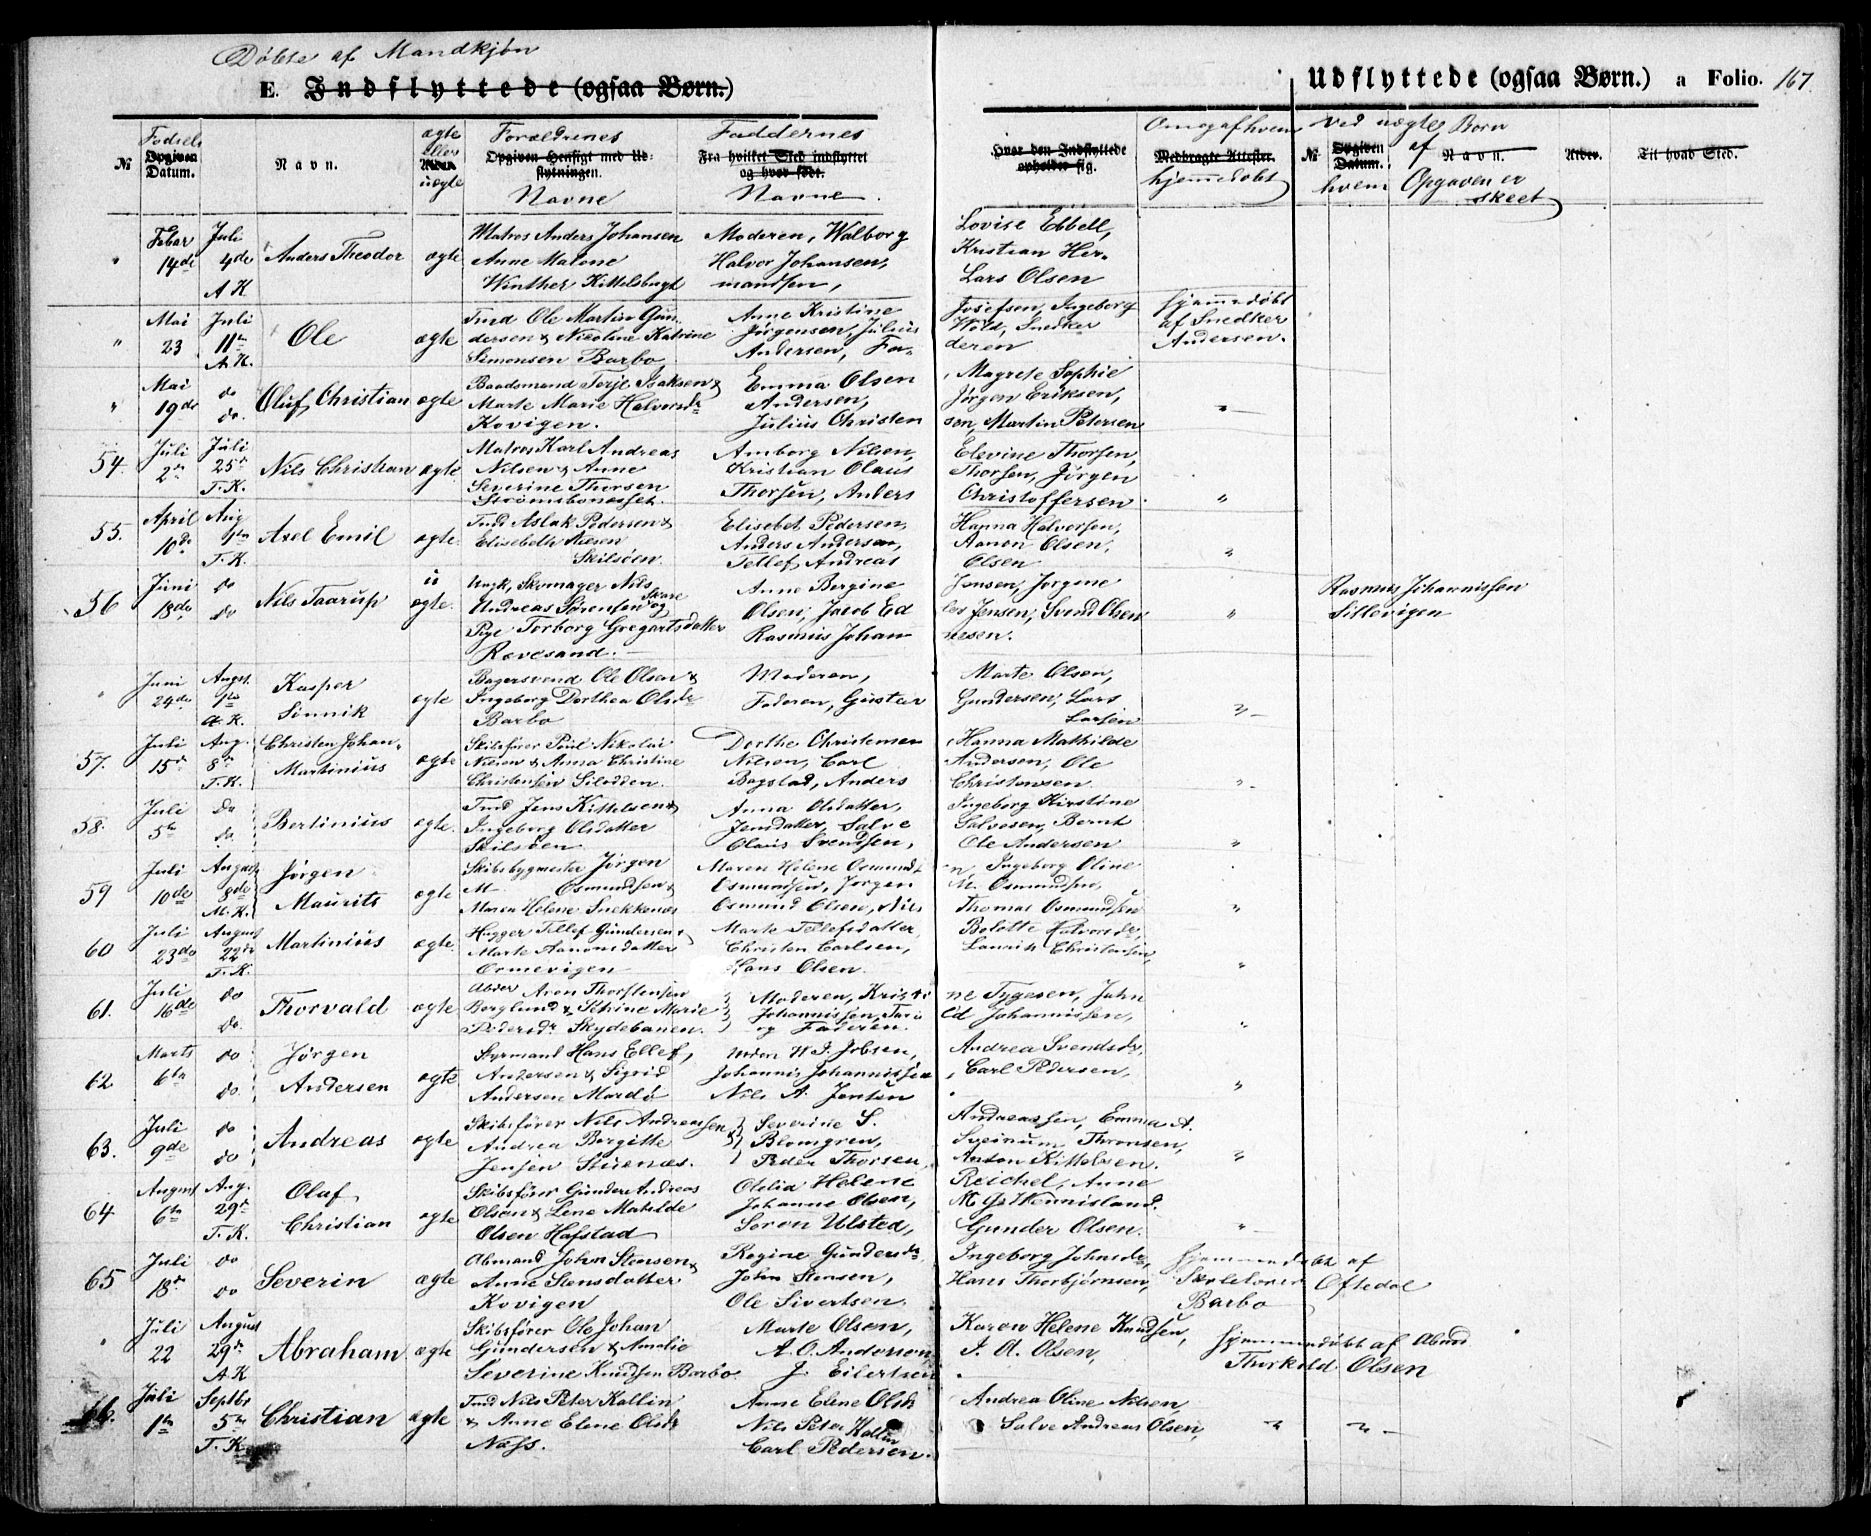 Døbte af Mandkjøn
E. Indflyttede (ogsaa Børn.)
Udflyttede (ogsaa Børn.) a Folio. 167.
№ Fødsels Opgiven Datum. Navn. ægte eller uægte Forældrenes Opgiven Hensigt med Udflytningen. Navne Faddernes Fra hvilket Sted indflyttet og hvor født. Navne
Hvor den Indflyttede opholder sig. Om og af hvem Medbragte Attester. hjemmedøbt № Opgiven Datum. Navn. Alder. Til hvad Sted.
Ved uægte Børn af hvem Opgaven er skeet
Febar Juli Matros Anders Johansen Moderen, Walborg Lovise Ebbell,
" 14de 4de Anders Theodor ægte Anne Malene Halvor Johansen, Kristian Her-
A K Winther Kittelsbugt mandsen, Lars Olsen
Mai Juli Tmd Ole Martin Gun- Anne Kristine Josefsen, Ingeborg hjemmedøbt
" 23 11te Ole ægte dersen & Nicoline Katrine Jørgensen, Julius Wold, Snedker af Snedker
A K. Simonsen Barbo Andersen, Fa- deren Andersen.
Mai do Baadsmand Terje Isaksen & Emma Olsen Magrete Sophie
" 19de do. Oluf Christian ægte Marte Marie Halvorsdr Andersen, Jørgen Eriksen, "
Kovigen. Julius Christen sen, Martin Petersen
Juli Juli Matros Karl Andreas Amborg Nilsen, Elevine Thorsen,
54. 2den 25de Nils Christian ægte Nilsen & Anne Kristian Olaus Thorsen, Jørgen
T. K. Severine Thorsen Thorsen, Anders Christoffersen "
Strømsbonesset.
April Aug Tmd Aslak Pedersen & Elisebet Pedersen, Hanna Halvorsen,
55. 10de 1ste Axel Emil ægte. Elisebeth Skilsöen. Anders Andersen, Aanon Olsen, "
T. K. Tellef Andreas Olsen
Juni do u Ungk, Skomager Nils Anne Bergine Jensen, Jørgene Rasmus Johannissen
56 18de do Nils Taarup ægte. Andreas Sörensen Skare og Olsen, Jacob Ed Jensen, Svend Olsen " Sillevigen
Pige Torborg Gregartsdatter Rasmus Johan nesen.
Revesand.
Juni Augst. Kasper Bagersvend Ole Olsen & Moderen, Marte Olsen,
" 24de 1ste Sinnik ægte Ingeborg Dorthea Olsdr Faderen, Gustav Gundersen, Lars
A. K. Barbo Larsen "
Juli Aug. Christen Johan- Skibsfører Poul Nikolai Dorthe Christensen Hanna Mathilde
57. 15de 8de Martinius ægte & Anna Christine Nilsen, Carl Andersen, Ole
T. K. Christensen Bagstad, Anders Christensen "
Juli Do Tmd Jens Kittelsen & Anna Olsdatter, Ingeborg Kirstine
58. 5te do. Bertinius ægte. Ingeborg Olsdatter Jensdatter, Salve Salvesen, Bernt
Skilsöen Olaus Svendsen, Ole Andersen "
Juli August Jørgen Skibsbygmester Jørgen Maren Helene Osmund- n, Ingeborg Oline
59 10de 8de Maurits ægte M. Osmundsen & Osmundsen, Jørgen M. Osmundsen,
M. K. Maren Helene Snekkenæs Osmund Olsen, Nils Thomas Osmundsen "
Juli August Hugger Tellef Gundersen & Marte Tellefsdatter, Bolette Halvorsdr,
60 23de 22de Martinius ægte. Marte Aanonsdatter Christen Carlsen, Laurits Christensen,
T. K. Ormevigen Hans Olsen. "
Juli do Aron Thorstensen Moderen, Kristi ne Tygesen, John
61. 16de Do. Thorvald ægte Berglund & Marie Johannissen, Johannissen,
Skydebanen. og Faderen. "
Marts do Jørgen Styrmand Hans Ellef, W. J. Jobsen, Andrea Svendsdr,
62 6te do. Andersen ægte Andersen & Sigrid Johannis Johannissen Carl Pedersen,
Andersen Mardö Nils A. Jensen "
Juli do Skibsfører Nils Andreassen & Severine S. Andreassen, Emma A.
63. 9de do Andreas ægte Andrea Birgitte Blomgren, Thronsen,
Jensen Peder Thorsen, Anton Kittelsen. "
August Aug. Olaf Skibsfører Gunder Andreas Otelia Helene Reichel, Anne
64 6te 29de Christian ægte Olsen & Lene Matilde Johanne Olsen, M. G. Hennisland.
T. K. Olsen Hafstad Søren Ulsted, Gunder Olsen. "
Juli do Abmand John Stensen & Regine Gundersdr Ingeborg Johnsdr, hjemmedøbt af
65 18de do Severin ægte Anne Stensdatter John Stensen, Hans Thorbjørnsen, Skolelærer Oftedal
Kovigen Ole Sivertsen, Barbo
Juli August Skibsfører Ole Johan Marte Olsen, Karen Helene Knudsen,
" 22 29de Abraham ægte Gundersen & Amalie A. O. Andersen, J. A. Olsen, hjemmedøbt af Abmd
A K Severine Knudsen Barbo J. Eilertsen. Thorkild Olsen
Juli Septbr Tmd Nils Peter Kallin Anne Elene Olsdr Andrea Oline Nilsen,
66. 1ste 5te Christian ægte & Anne Elene Olsdr Nils Peter Kallin Salve Andreas Olsen, " "
T. K. Næss. Carl Pedersen.